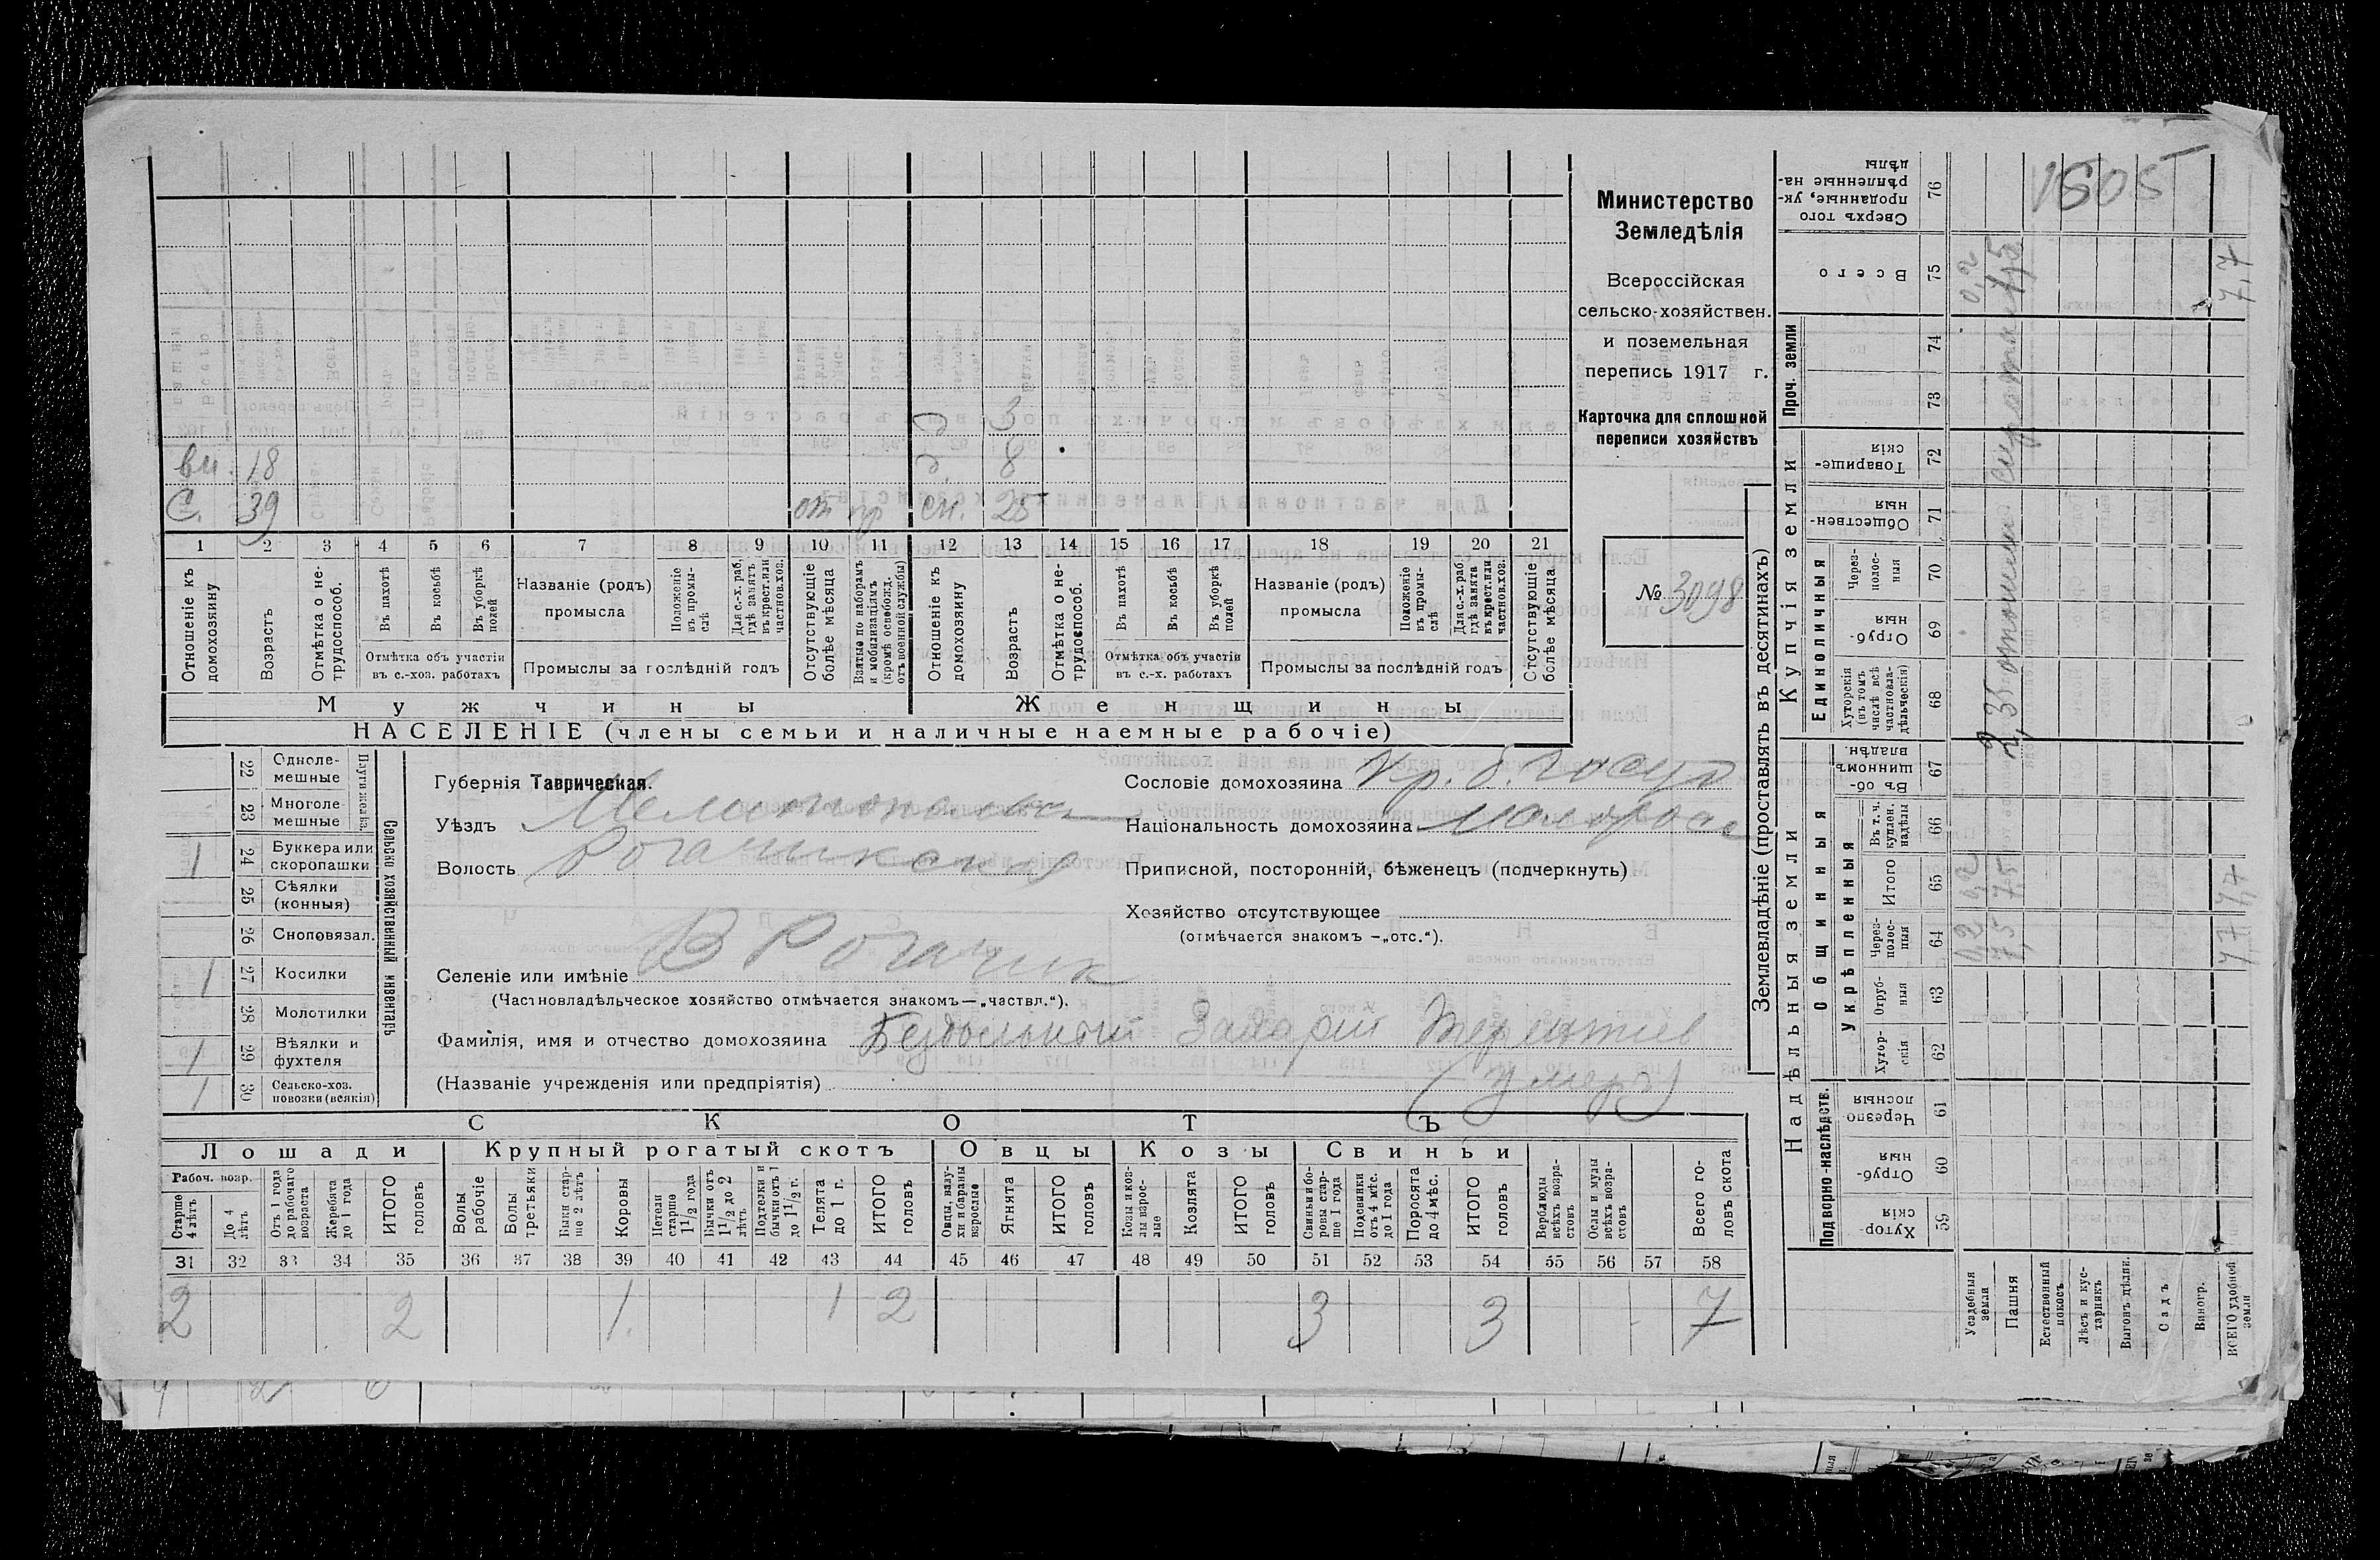 вн. 18
С. 39 от пр
д. 3
д. 8
сн. 25
1 2 3 4 5 6 7 8 9 10 11 12 13 14 15 16 17 18 19 20 21
Отношеніе къ домохозяину
Возрастъ
Отмѣтка о нетрудоспособ.
Въ пахотѣ
Въ косьбѣ
Въ уборкѣ полей
Отмѣтка объ участіи
въ с.-хоз. работахъ
Названіе (родъ)
промысла
Положеніе въ промыслѣ
Для с.-х. раб. гдѣ занятъ въ крест. или частнов. хоз.
Промыслы за послѣдній годъ
Отсутствующіе болѣе мѣсяца
Взятые по наборамъ и мобилизаціямъ (кромѣ освобожд. отъ военной службы)
Отношеніе къ домохозяину
Возрастъ
Отмѣтка о нетрудоспособ.
Въ пахотѣ
Въ косьбѣ
Въ уборкѣ полей
Отмѣтка объ участіи
въ с.-х. работахъ
Названіе (родъ)
промысла
Положеніе въ промыслѣ
Для с.-х. раб. гдѣ занята въ крест. или частнов. хоз.
Промыслы за послѣдній годъ
Отсутствующіе болѣе мѣсяца
Мужчины Женщины
НАСЕЛЕНІЕ (члены семьи и наличные наемные рабочіе)
Министерство
Земледѣлія
Всероссійская
сельско-хозяйствен.
и поземельная
перепись 1917 г.
Карточка для сплошной
переписи хозяйствъ
№ 3098
22 Одноле-мешные
23 Многоле-мешные
1 24 Буккера или скоропашки
25 Сѣялки (конныя)
26 Сноповязал.
1 27 Косилки
28 Молотилки
1 29 Вѣялки и фухтеля
1 30 Сельско-хоз. повозки (всякія)
Сельско хозяйственный инвентарь
Губернія Таврическая.
Уѣздъ Мелитопольск
Волость Рогачикская
Селеніе или имѣніе В Рогачик
(Частновладѣльческое хозяйство отмѣчается знакомъ—„частвл.“).
Фамилія, имя и отчество домохозяина Безвольный Захарий Терентиев
(Названіе учрежденія или предпріятія) (умеръ)
Сословіе домохозяина Кр. б. Госуд
Національность домохозяина малоросс
Приписной, посторонній, бѣженецъ (подчеркнуть)
Хозяйство отсутствующее
(отмѣчается знакомъ —„отс.“).
СКОТЪ
Лошади Крупный рогатый скотъ Овцы Козы Свиньи
Рабоч. возр.
Старше 4 лѣтъ
До 4 лѣтъ
Отъ 1 года до рабочаго возраста
Жеребята до 1 года
ИТОГО головъ
Волы рабочіе
Волы третьяки
Быки старше 2 лѣтъ
Коровы
Нетели старше 1 1/2 года
Бычки отъ 1 1/2 до 2 лѣтъ
Подтелки и бычки отъ 1 до 1 1/2 г.
Телята до 1 г.
ИТОГО головъ
Овцы, валухи и бараны взрослые
Ягнята
ИТОГО головъ
Козы и козлы взрослые
Козлята
ИТОГО головъ
Свиньи и боровы старше 1 года
Подсвинки отъ 4 мѣс. до 1 года
Поросята до 4 мѣс.
ИТОГО головъ
Верблюды всѣхъ возрастовъ
Ослы и мулы всѣхъ возрастовъ
Всего головъ скота
31 32 33 34 35 36 37 38 39 40 41 42 43 44 45 46 47 48 49 50 51 52 53 54 55 56 57 58
2 2 1 1 2 3 3 7
Землевладѣніе (проставлять въ десятинахъ)
Надѣльныя земли Купчія земли Проч. земли
Подворно-наслѣдств. Общинныя Единоличныя
Укрѣпленныя
Хуторскія 59
Отрубныя 60
Черезполосныя 61
Хуторскія 62
Отрубныя 63
Черезполосныя 64
Итого 65
Въ т. ч. куплен. надѣлы 66
Въ общинномъ владѣн. 67
Хуторскія (въ томъ числѣ всѣ частновладѣльческія) 68
Отрубныя 69
Черезполосныя 70
Общественныя 71
Товарищескія 72
73
74
Всего 75
Сверхъ того проданные, укрѣпленные надѣлы 76
Усадебныя земли 0,2 0,2 0,2
Пашня 7,5 7,5 7,5
Естественный покосъ
Лѣсъ и кустарникъ
Выгонъ дѣлян.
Садъ
Виногр.
ВСЕГО удобной земли 7,7 7,7 7,7
1505